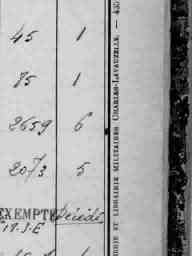 45 1
85 1
2659 6
2073 5
EXEMPTÉ Décédé
RIE ET LIBRAIRIE MILITAIRES CHARLES-LAVAUZELLE. —